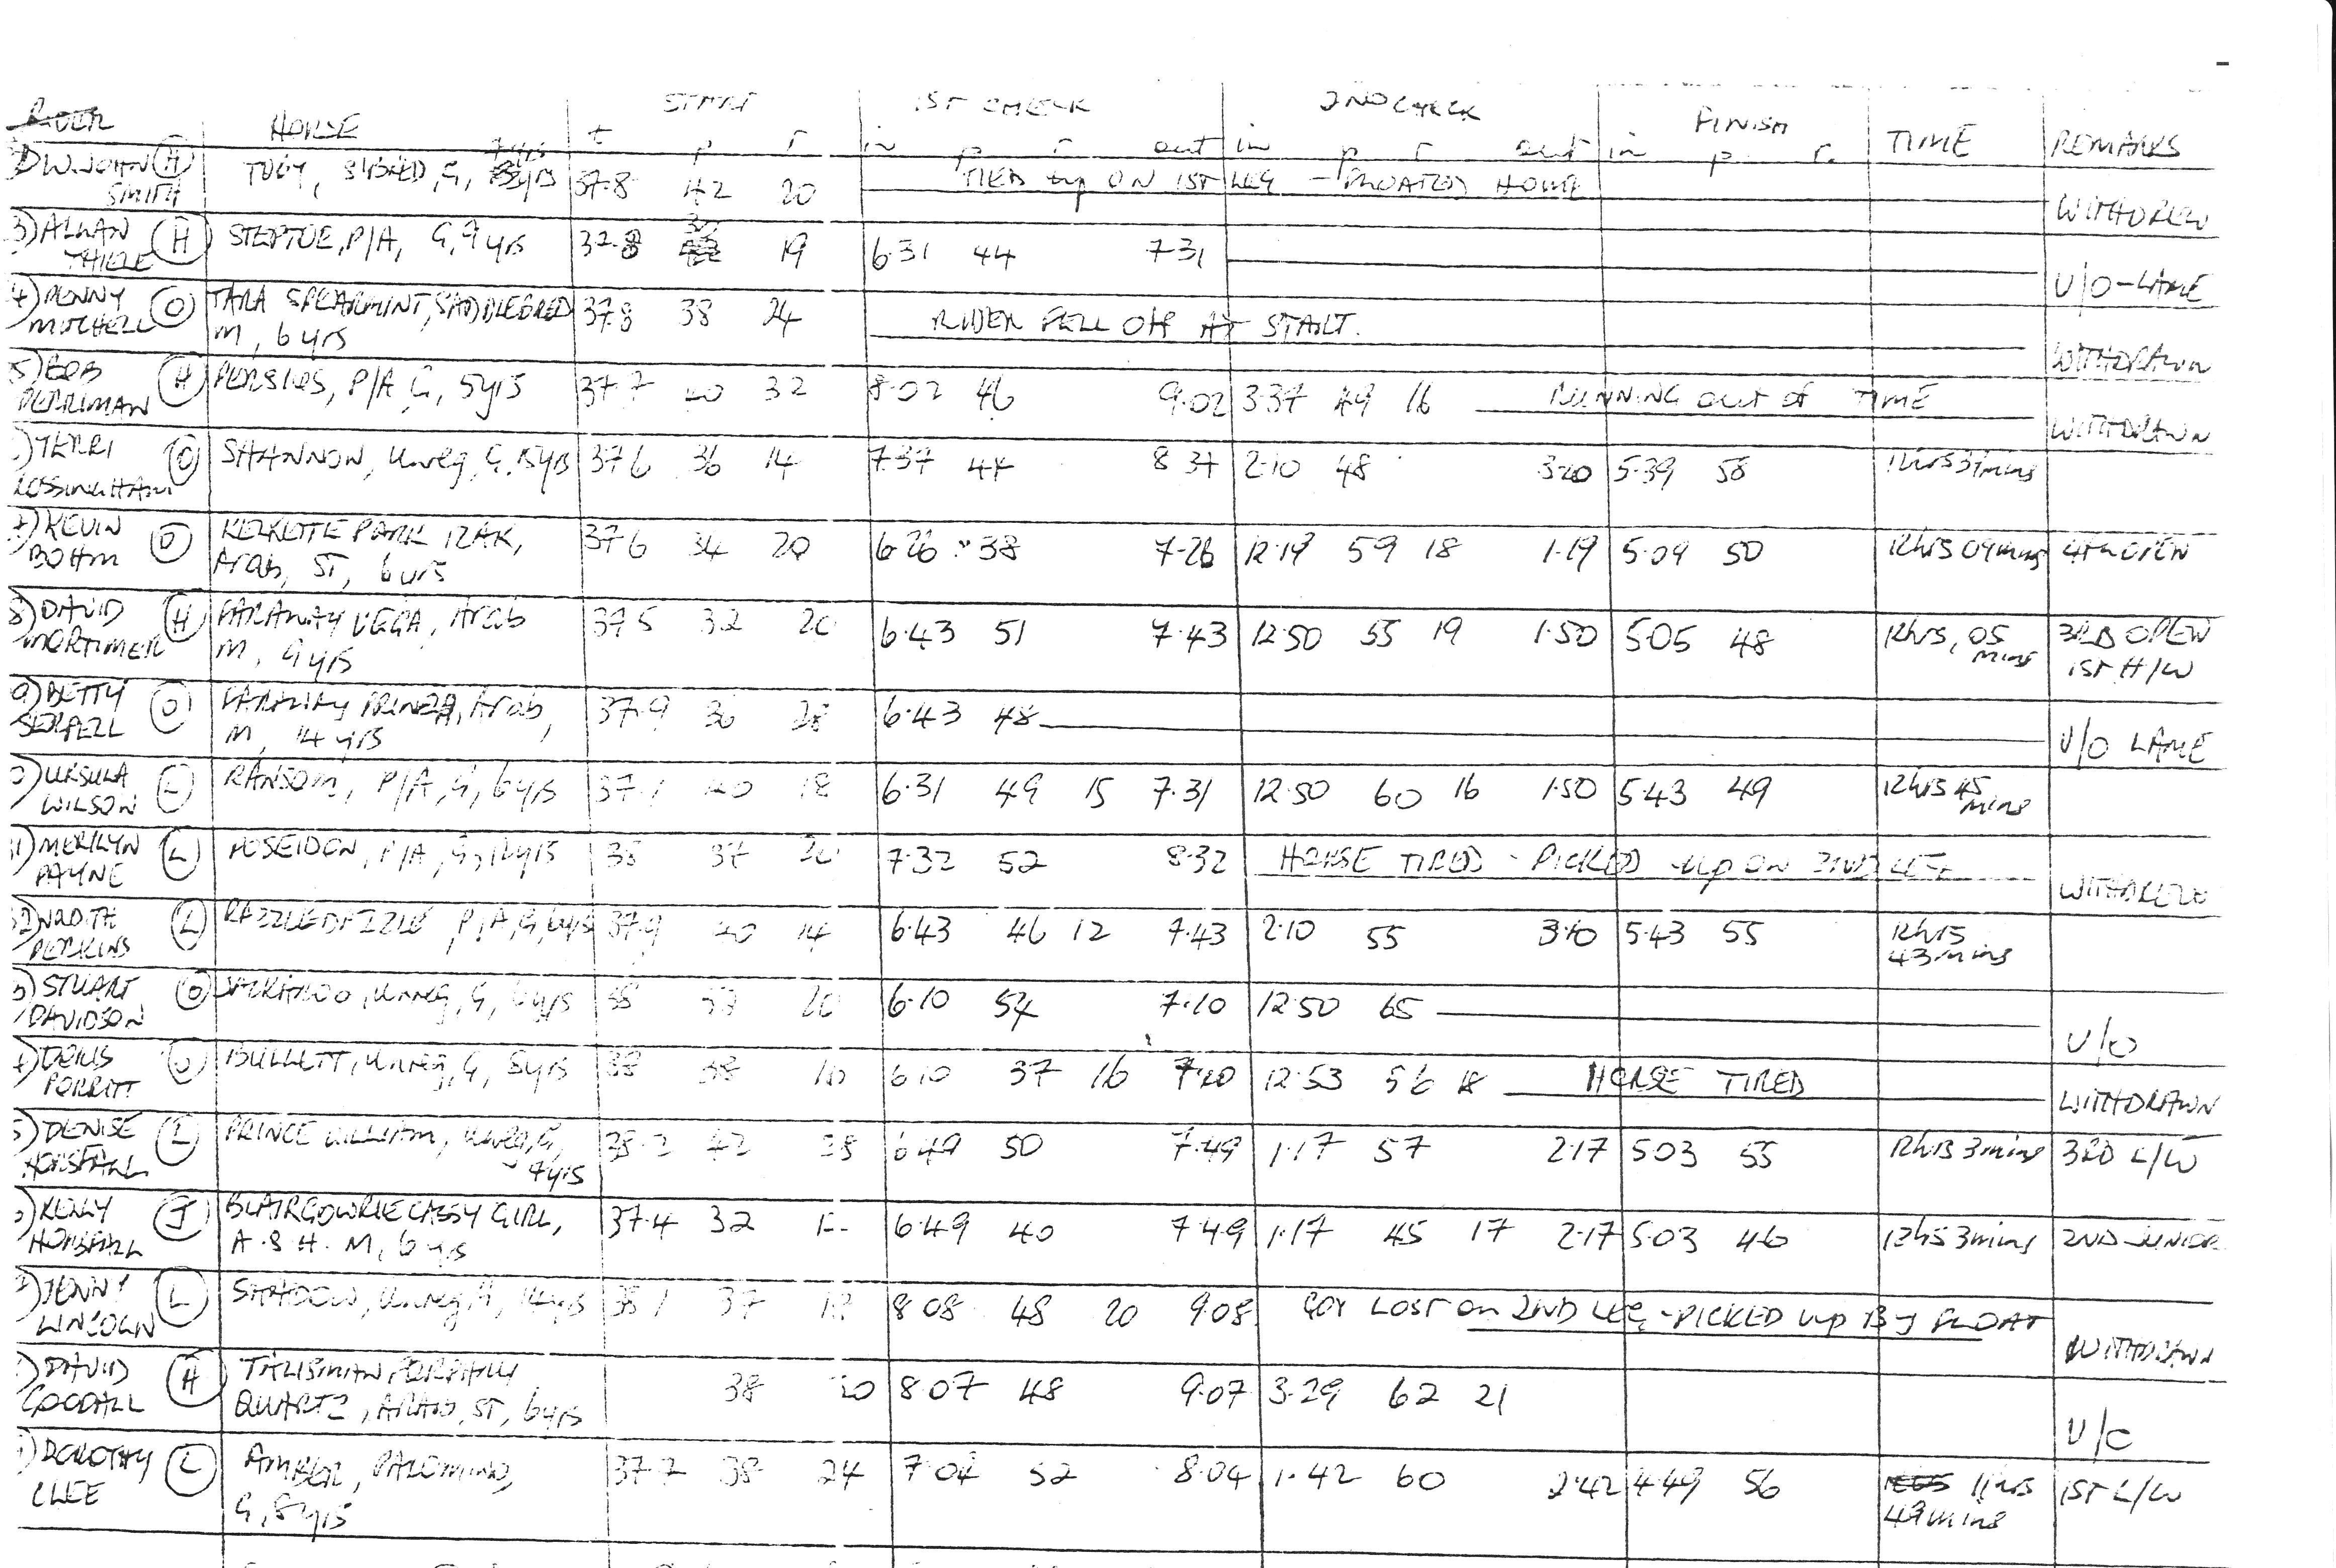 RIDER HORSE START 1ST CHECK 2ND CHECK FINISH TIME REMARKS
t p r in p r out in p r out in p r.
2) W. JOHN SMITH (H) TOBY, S/BRED, G, 7yrs 37.8 42 20 TIED up ON 1ST LEG - FLOATED HOME WITHDREW
3) ALLAN THIELE (H) STEPTOE, P/A, G, 9yrs 37.8 36 19 6.31 44 7.31 V/O - LAME
4) PENNY MITCHELL (O) TARA SPEARMINT, SADDLEBRED M, 6 yrs 37.8 38 24 RIDER FELL OFF AT START. WITHDRAWN
5) BOB PERRIMAN (H) P/A G, 5yrs 37.7 40 32 8.02 46 9.02 3.37 49 16 RUNNING out of TIME WITHDRAWN
) TERRI ROSSINGHAM (O) SHANNON, Unreg, G, 37.6 36 14 7.37 44 8.37 2.10 48 3.20 5.39 58 12hrs 39mins
7) KEVIN BOHM (O) PARK IZAK, Arab, ST, 6 yrs 37.6 34 20 6.26 38 7.26 12.19 59 18 1.19 5.09 50 12hrs 09mins 4TH OPEN
8) DAVID MORTIMER (H) FARAWAY VEGA, Arab M, 9yrs 37.5 32 20 6.43 51 7.43 12.50 55 19 1.50 5.05 48 12hrs, 05 mins 3RD OPEN 1ST H/W
9) BETTY SERPELL (O) FARAWAY Arab, M, 14 yrs 37.9 36 28 6.43 48 V/O LAME
0) URSULA WILSON (L) RANSOM, P/A, G, 6yrs 37.1 40 18 6.31 49 15 7.31 12.50 60 16 1.50 5.43 49 12hrs 45 mins
1) MERILYN PAYNE (L) POSEIDON, P/A, G, 12yrs 38 37 20 7.32 52 8.32 HORSE TIRED - PICKED up ON 2ND LEG WITHDREW
2) PERKINS (L) RAZZLEDAZZLE P/A, G, 6yrs 37.9 40 14 6.43 46 12 7.43 2.10 55 3.10 5.43 55 12hrs 43mins
3) STUART DAVIDSON (O) Unreg, G, 6yrs 38 20 6.10 54 7.10 12.50 65 V/O
4) PORRITT (O) BULLETT, Unreg, G, 8yrs 38 38 6.10 37 16 7.10 12.53 56 18 HORSE TIRED WITHDRAWN
5) DENISE HORSFALL (L) PRINCE WILLIAM, Unreg, G, 7yrs 38.2 42 28 6.49 50 7.49 1.17 57 2.17 5.03 55 12hrs 3mins 3RD L/W
) KELLY HORSFALL (J) BLAIRGOWRIE CASSY GIRL, A.S.H. M, 6 yrs 37.4 32 6.49 40 7.49 1.17 45 17 2.17 5.03 46 12hrs 3mins 2ND JUNIOR
) JENNY LINCOLN (L) SHADOW, Unreg, 14yrs 38.1 37 8.08 48 20 9.08 GOT LOST on 2ND LEG, - PICKED up BY FLOAT WITHDRAWN
) DAVID GOODALL (H) TALISMAN QUARTZ, ARAB, ST, 6yrs 38 20 8.07 48 9.07 3.29 62 21 V/O
) DOROTHY CLEE (L) AMBER, PALOMINO, G, 8yrs 37.7 38 24 7.04 52 8.04 1.42 60 2.42 4.49 56 11hrs 49mins 1ST L/W